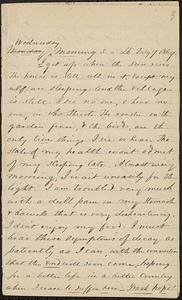 Wednesday
Morning 5 o clk July 7 1869
I get up when the sun rises
The house is still with in it. Except my
self are sleeping. And the village
is still. I see no one, & hear no
one, in the Streets. The rooster on the
garden fence, & the birds, are the
only live things I see or hear. The
state of my health wont admit of
my sleeping late. Almost every
morning, I wait uneasily for the
light. I am troubled very much
with a dull pain in my stomach
& bowels that is very depressing.
I dont enjoy my food. I must
bear these symptoms of decay as
patiently as I can, with the conviction
that the end will soon come, hoping
for a better life in a better country
when I cease to suffer in